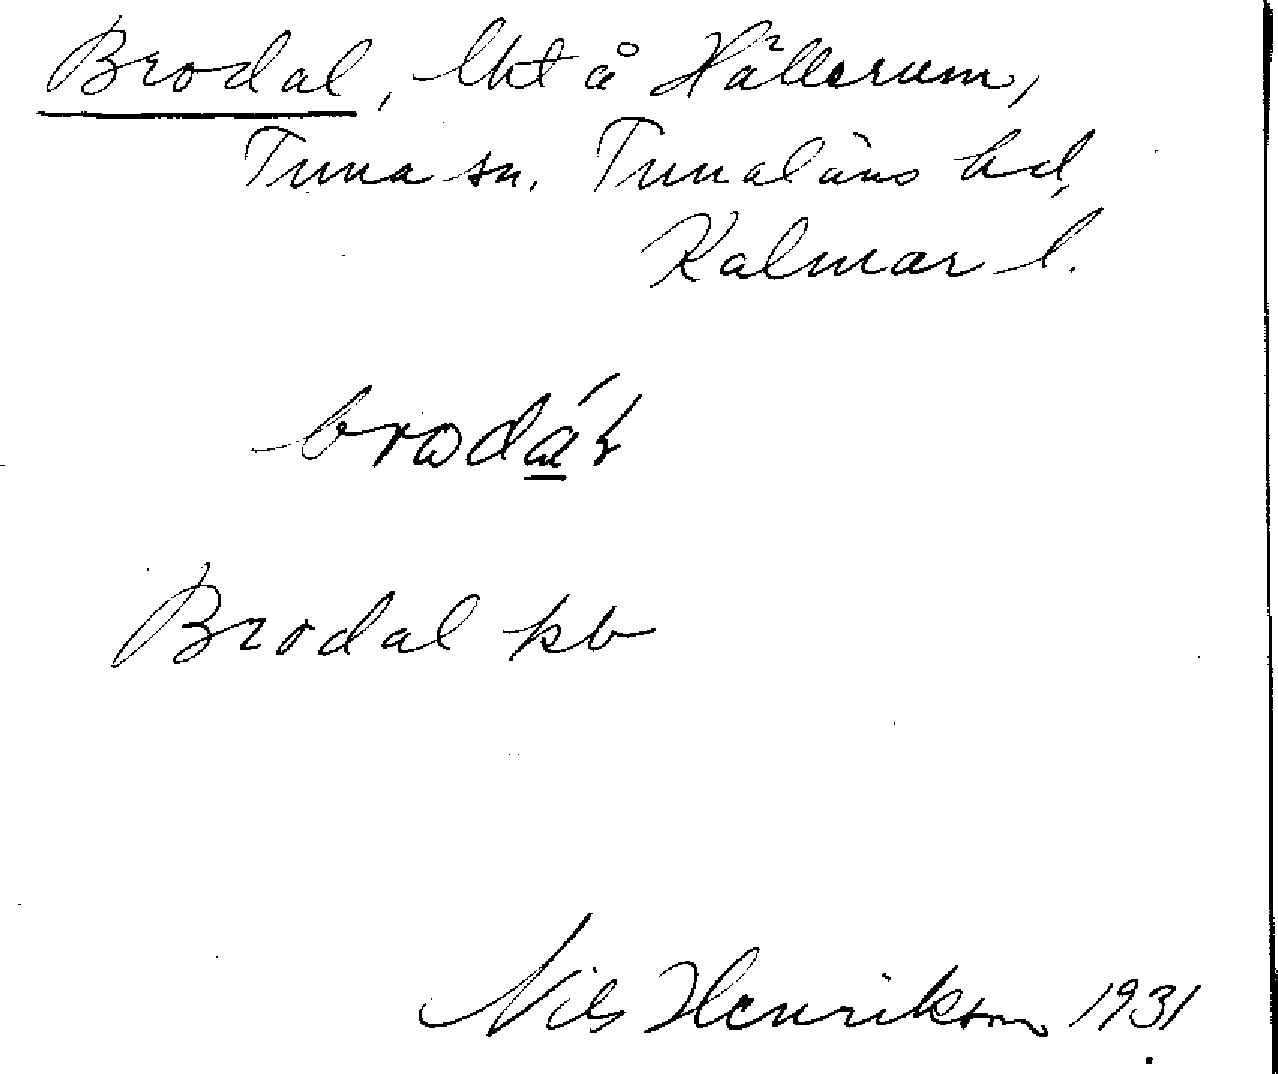 Brodal, lht å Hällerum,
Tuna sn. Tunaläns hd,
Kalmar l.
brodát
Brodal kb
Nils Henrikson 1931